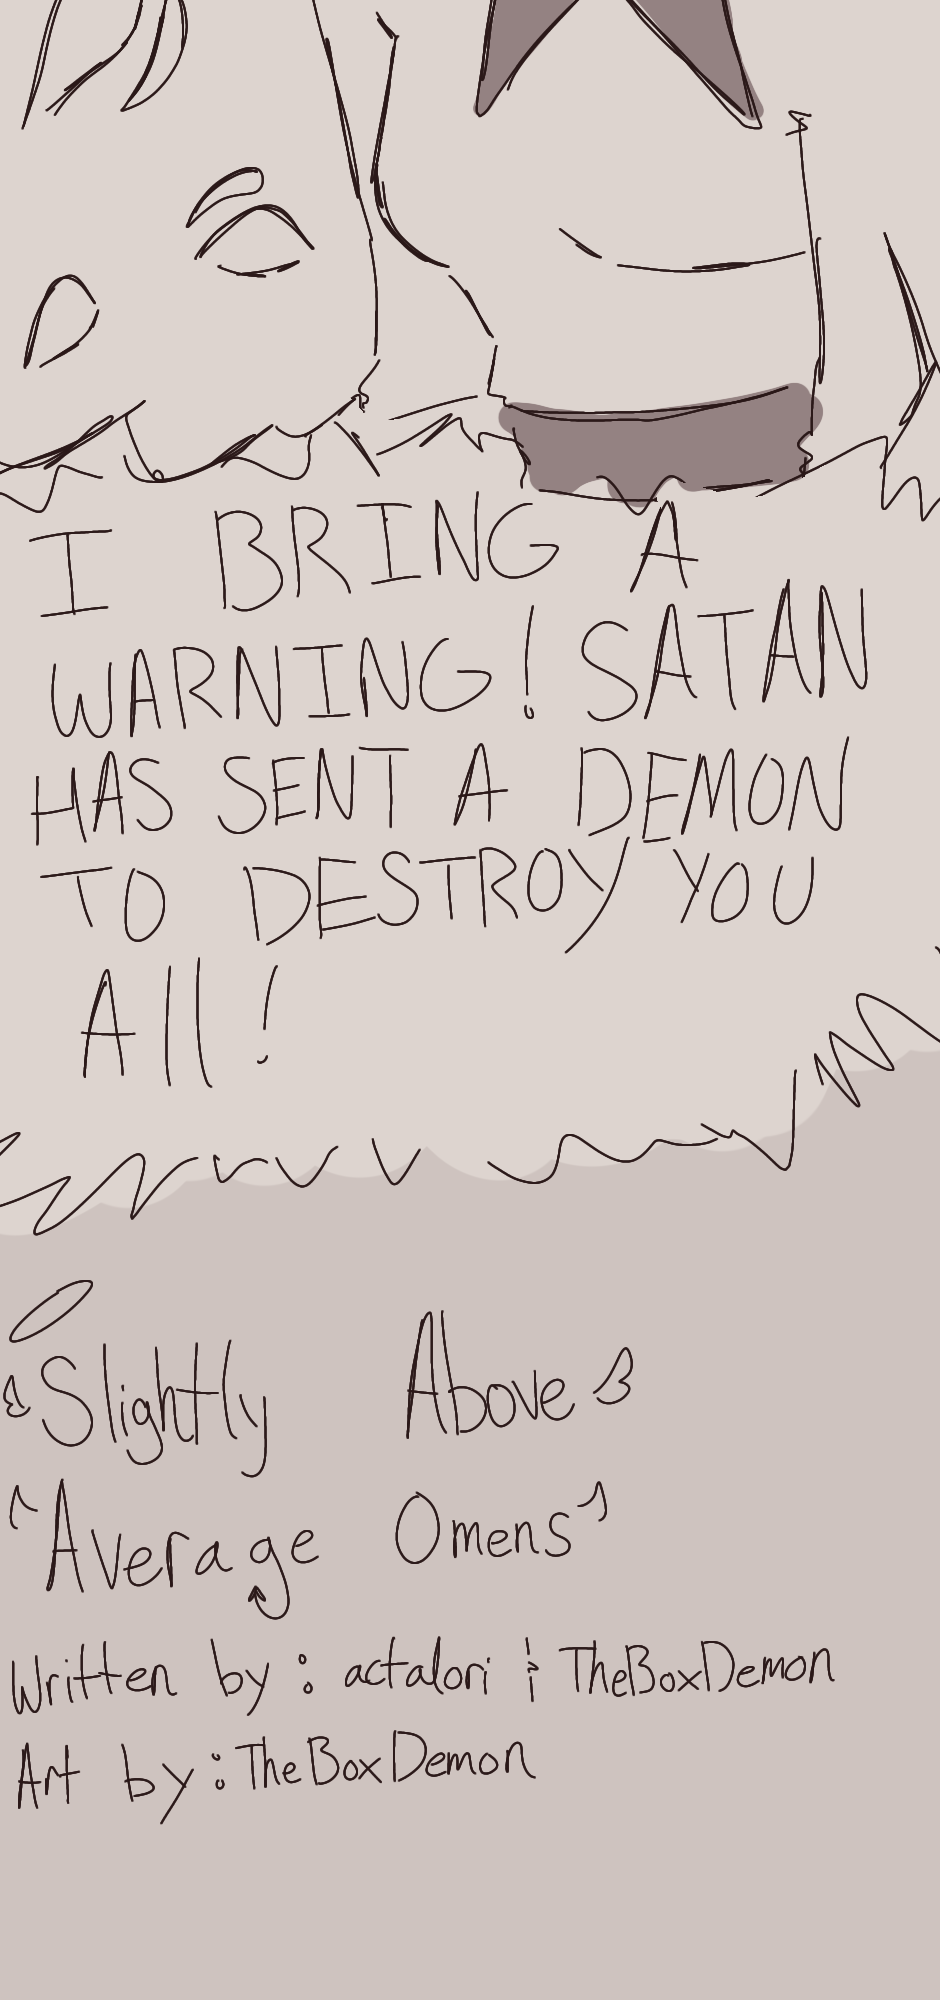 I BRING A
WARNING! SATAN
HAS SENT A DEMON
TO DESTROY YOU
All!
Slightly Above
Average Omens
Written by: actalori & TheBoxDemon
Art by: TheBoxDemon